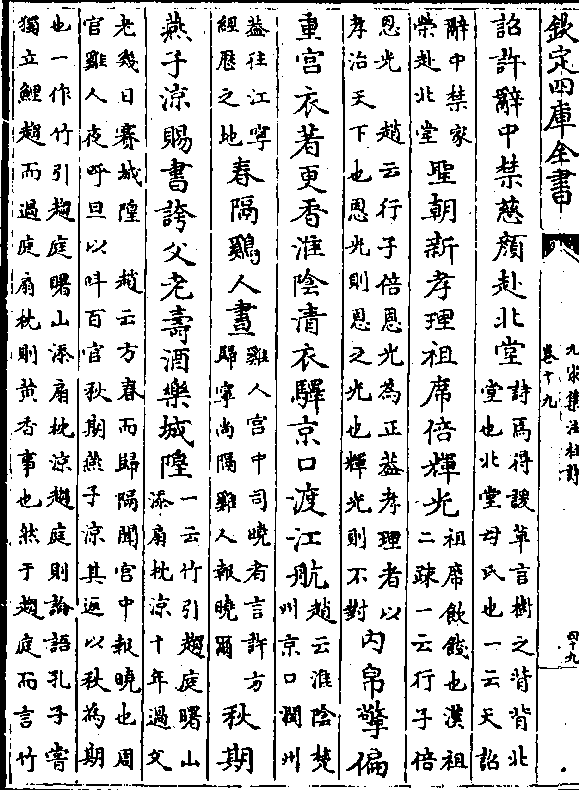 欽定四庫全書
九家集注杜詩
卷十九
四十九
詔許辭中禁慈顏赴北堂
詩焉得諼草言樹之背背北
堂也北堂母氏也一云天詔
辭中禁家
榮赴北堂
聖朝新孝理祖席倍輝光
祖席飲餞也漢祖
二疎一云行子倍
恩光 趙云行子倍恩光為正蓋孝理者以
孝治天下也恩光則恩之光也輝光則不對
内帛擎偏
重宫衣著更香淮陰清衣驛京口渡江航
趙云淮陰楚
州京口潤州
蓋往江寧
經歷之地
春隔鷄人晝
雞人宫中司曉者言許方
歸寧尚隔雞人報曉爾
秋期
燕子涼賜書誇父老壽酒樂城隍
一云竹引趨庭曙山
添扇枕涼十年過父
老幾日賽城隍 趙云方春而歸隔聞宫中報曉也周
官雞人夜呼旦以叫百官秋期燕子涼其返以秋為期
也一作竹引趨庭曙山添扇枕涼趨庭則論語孔子嘗
獨立鯉趨而過庭扇枕則黄香事也然于趨庭而言竹